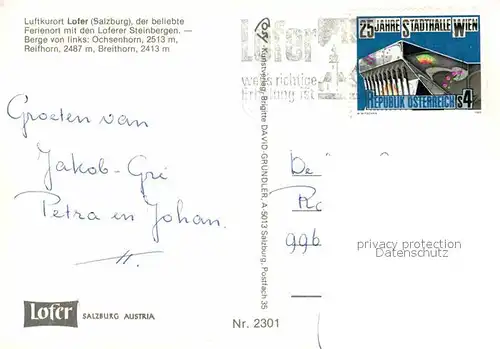 Luftkurort Lofer (Salzburg), der beliebte
Ferienort mit den Loferer Steinbergen. —
Berge von links: Ochsenhorn, 2513 m,
Reifhorn, 2487 m, Breithorn, 2413 m
Groeten van
Jakob-Gré
Petra en Johan.
Lofer
SALZBURG AUSTRIA
Nr. 2301
Cosy Kunstverlag, Brigitte DAVID-GRÜNDLER, A-5013 Salzburg, Postfach 35
Lofer
richtige
ist
25 JAHRE STADTHALLE WIEN
REPUBLIK ÖSTERREICH S4
De
996
privacy protection
Ansichtskartenversand.com